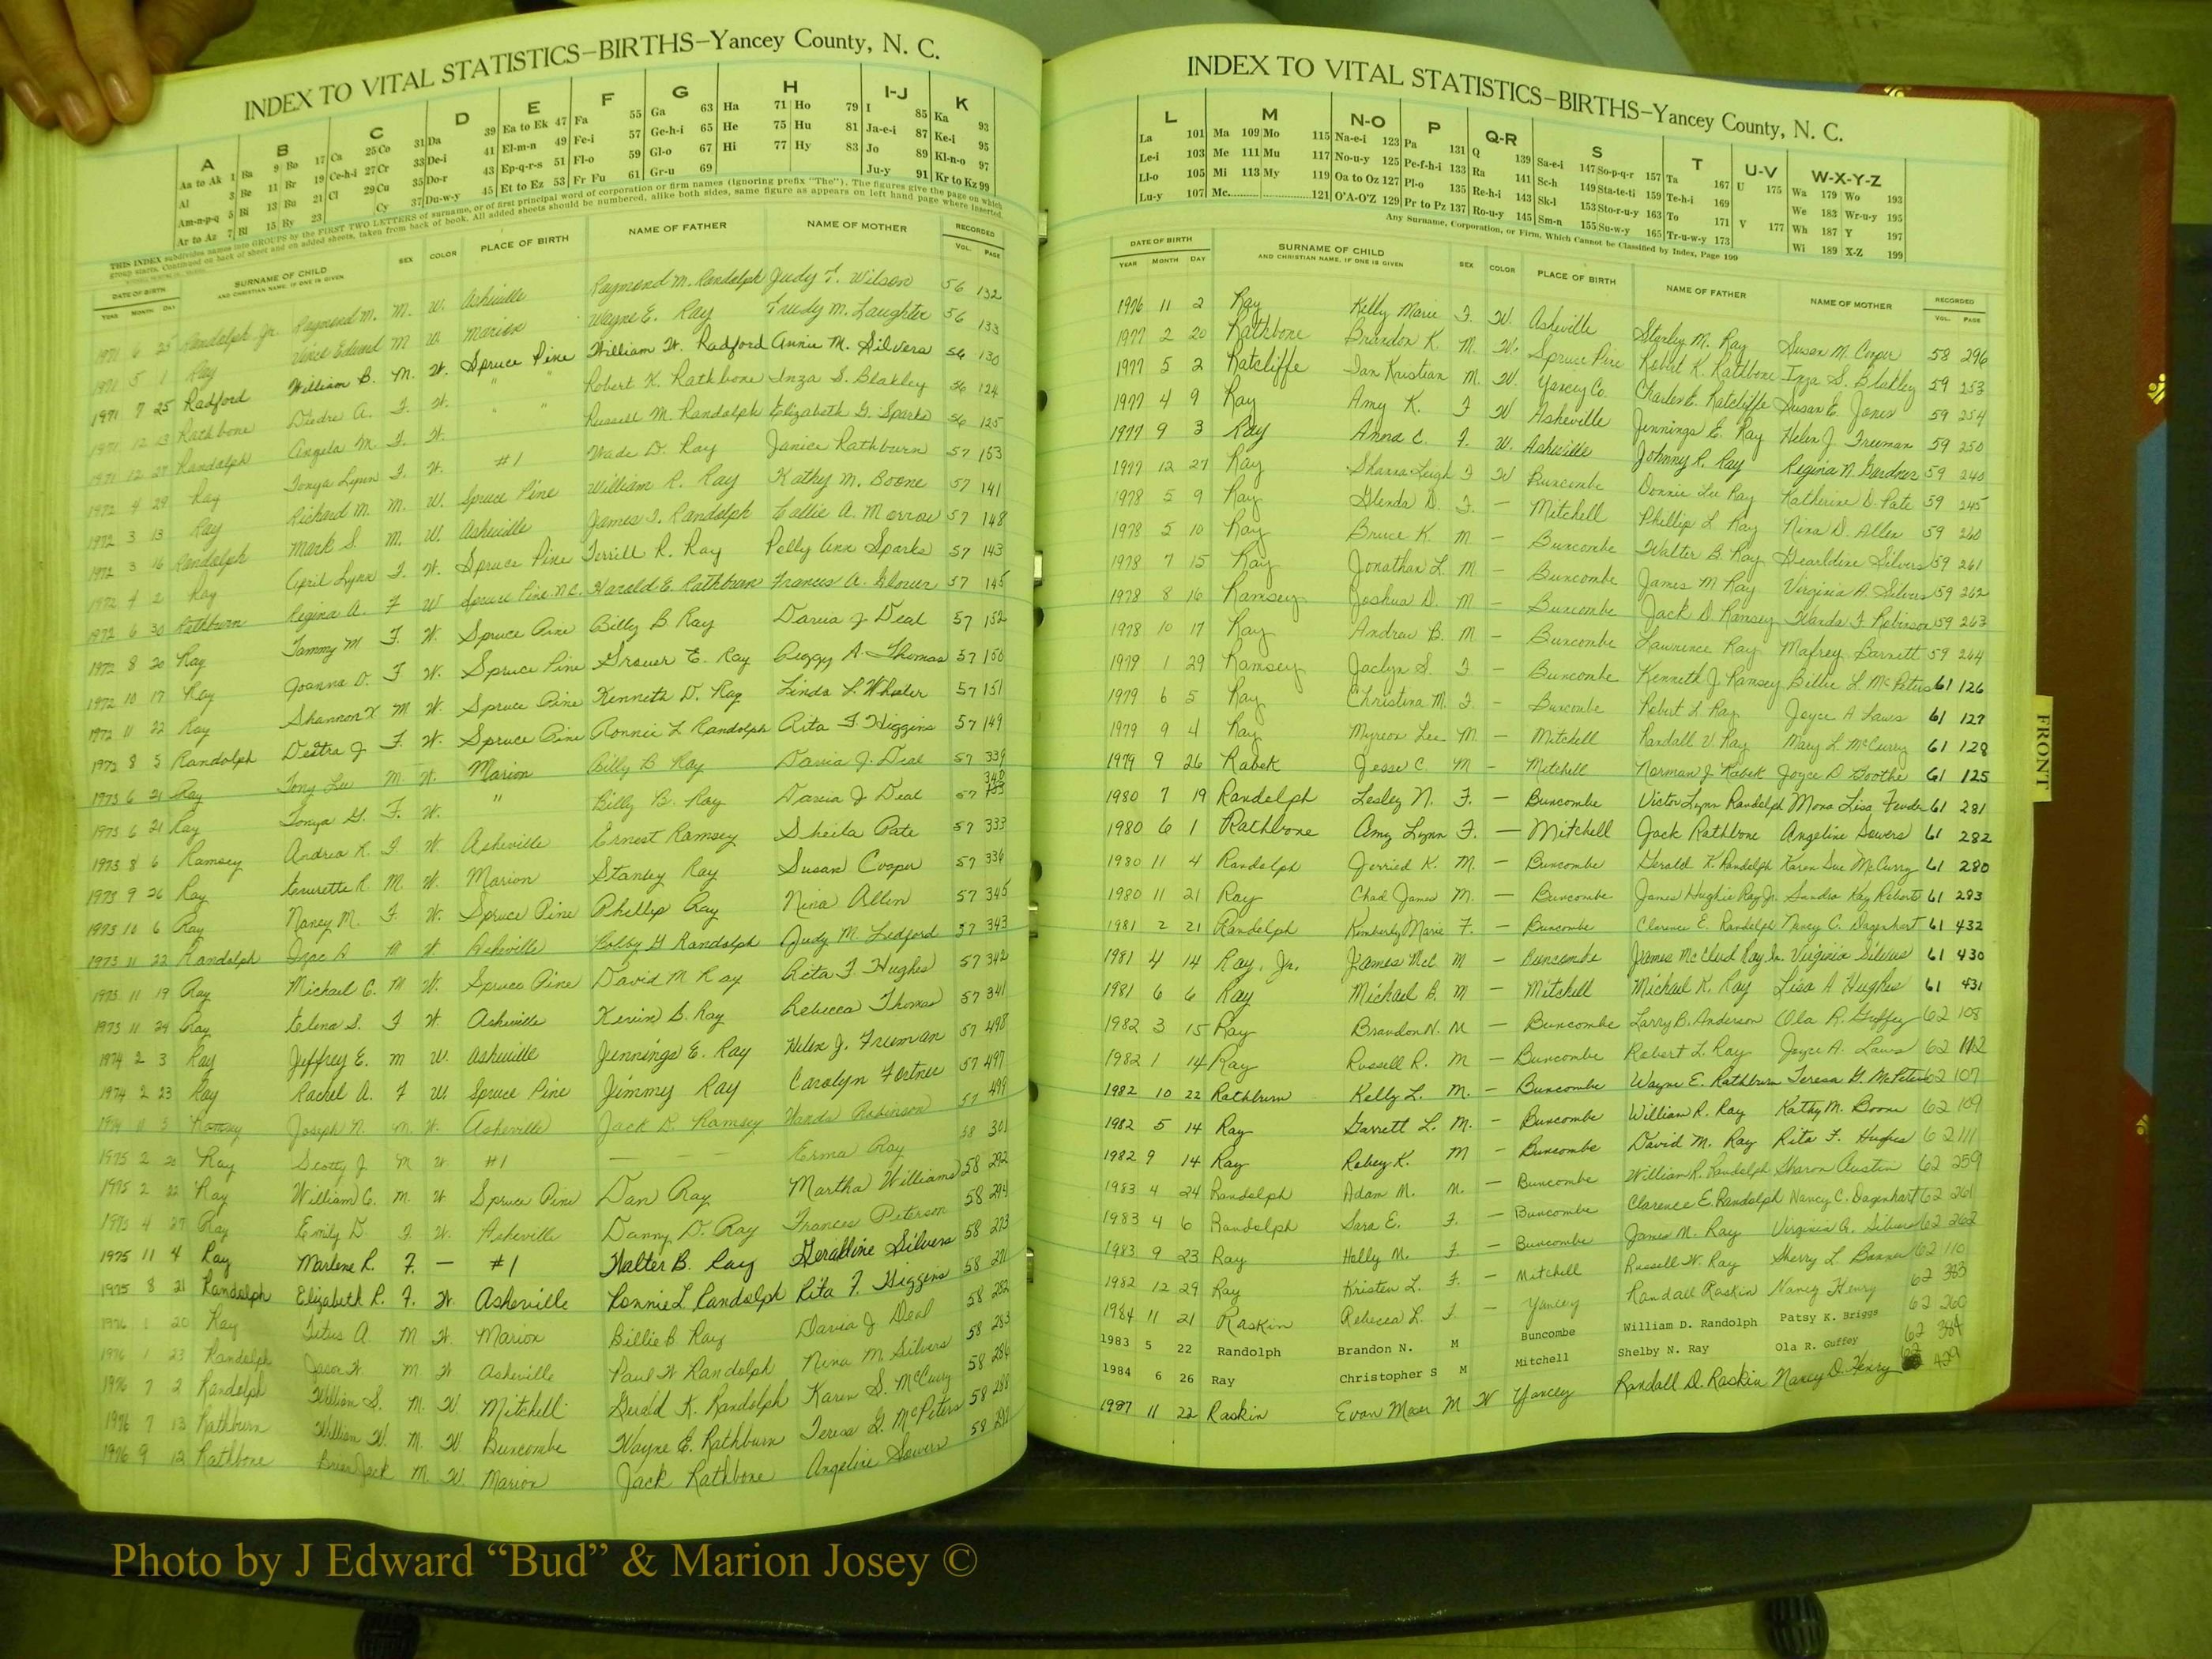 INDEX TO VITAL STATISTICS–BIRTHS–Yancey County, N. C.
A B C D E F G H I-J K
Aa to Ak 1 Ba 9 Bo 17 Ca 25 Co 31 Da 39 Ea to Ek 47 Fa 55 Ga 63 Ha 71 Ho 79 I 85 Ka 93
Al 3 Be 11 Br 19 Ce-h-i 27 Cr 33 De-i 41 El-m-n 49 Fe-i 57 Ge-h-i 65 He 75 Hu 81 Ja-e-i 87 Ke-i 95
Am-n-p-q 5 Bi 13 Bu 21 Cl 29 Cu 35 Do-r 43 Ep-q-r-s 51 Fl-o 59 Gl-o 67 Hi 77 Hy 83 Jo 89 Kl-n-o 97
Ar to Az 7 Bl 15 By 23 Cy 37 Du-w-y 45 Et to Ez 53 Fr Fu 61 Gr-u 69 Ju-y 91 Kr to Kz 99
THIS INDEX subdivides names into GROUPS by the FIRST TWO LETTERS of surname, or of first principal word of corporation or firm names (ignoring prefix "The"). The figures give the page on which
group starts. Continued on back of sheet and on added sheets, taken from back of book. All added sheets should be numbered, alike both sides, same figure as appears on left hand page where inserted.
DATE OF BIRTH SURNAME OF CHILD SEX COLOR PLACE OF BIRTH NAME OF FATHER NAME OF MOTHER RECORDED
YEAR MONTH DAY AND CHRISTIAN NAME, IF ONE IS GIVEN VOL. PAGE
1971 6 25 Randolph Jr. Raymond M. M. W. Asheville Raymond M. Randolph Judy F. Wilson 56 132
1971 5 1 Ray Vince Edward M W. Marion Wayne E. Ray Trudy M. Laughter 56 133
1971 7 25 Radford William B. M. W. Spruce Pine William W. Radford Annie M. Silvers 56 130
1971 12 13 Rathbone Diedre A. F. W. " " Robert K. Rathbone Inza S. Blakley 56 124
1971 12 27 Randolph Angela M. F. W. " " Russell M. Randolph Elizabeth G. Sparks 56 125
1972 4 29 Ray Tonya Lynn F. W. #1 Wade D. Ray Janice Rathburn 57 153
1972 3 13 Ray Richard M. M. W. Spruce Pine William R. Ray Kathy M. Boone 57 141
1972 3 16 Randolph Mark S. M. W. Asheville James I. Randolph Callie A. Morrow 57 148
1972 4 2 Ray April Lynn F. W. Spruce Pine Terrill R. Ray Polly Ann Sparks 57 143
1972 6 30 Rathburn Regina A. F W Spruce Pine N.C. Harold E. Rathburn Frances A. Glover 57 145
1972 8 20 Ray Tammy M F. W. Spruce Pine Billy B. Ray Davia J. Deal 57 152
1972 10 17 Ray Joanna D. F W. Spruce Pine Grover E. Ray Peggy A. Thomas 57 150
1972 11 22 Ray Shannon K M W. Spruce Pine Kenneth D. Ray Linda L. Wheeler 57 151
1972 8 5 Randolph Destra J F. W. Spruce Pine Ronnie L Randolph Rita F. Higgins 57 149
1973 6 21 Ray Tony Lee M. W. Marion Billy B Ray Davia J. Deal 57 339
1973 6 21 Ray Tonya G. F. W. " Billy B. Ray Davia J Deal 57 340
1973 8 6 Ramsey Andrea R. F. W. Asheville Ernest Ramsey Sheila Pate 57 333
1973 9 26 Ray R. M. W. Marion Stanley Ray Susan Cooper 57 336
1973 10 6 Ray Nancy M. F. W. Spruce Pine Phillip Ray Nina Allen 57 345
1973 11 22 Randolph Isac A M W. Asheville Bobby G Randolph Judy M. Ledford 57 343
1973 11 19 Ray Michael C. M W. Spruce Pine David M. Ray Rita F. Hughes 57 342
1973 11 24 Ray Elena S. F W. Asheville Kevin B. Ray Rebecca Thomas 57 341
1974 2 3 Ray Jeffrey E. M W. Asheville Jennings E. Ray Helen J. Freeman 57 498
1974 2 23 Ray Rachel A. F W. Spruce Pine Jimmy Ray Carolyn Fortner 57 497
1974 11 5 Ramsey Joseph N. M. W. Asheville Jack D. Ramsey Wanda Robinson 57 499
1975 2 20 Ray Scotty J. M W #1 — — — Erma Ray 58 301
1975 2 22 Ray William C. M. W. Spruce Pine Dan Ray Martha Williams 58 292
1975 4 27 Ray Emily D. F. W. Asheville Danny D. Ray Frances Peterson 58 294
1975 11 4 Ray Marlene R. F. — #1 Walter B. Ray Geraldine Silvers 58 293
1975 8 21 Randolph Elizabeth R. F. W. Asheville Ronnie L Randolph Rita F. Higgins 58 291
1976 1 20 Ray Titus A. M W. Marion Billie B Ray Davia J. Deal 58 282
1976 1 23 Randolph Jason W. M. W Asheville Paul W Randolph Nina M. Silvers 58 283
1976 7 2 Randolph William S. M. W Mitchell Gerald K. Randolph Karen S. McCurry 58 286
1976 7 13 Rathburn William W. M. W. Buncombe Wayne E. Rathburn Teresa G. McPeters 58 288
1976 9 12 Rathbone Brian Jack M. W. Marion Jack Rathbone Angeline Sowers 58 290
INDEX TO VITAL STATISTICS–BIRTHS–Yancey County, N. C.
L M N-O P Q-R S T U-V W-X-Y-Z
La 101 Ma 109 Mo 115 Na-e-i 123 Pa 131 Q 139 Sa-e-i 147 So-p-q-r 157 Ta 167 U 175 Wa 179 Wo 193
Le-i 103 Me 111 Mu 117 No-u-y 125 Pe-f-h-i 133 Ra 141 Sc-h 149 Sta-te-ti 159 Te-h-i 169 We 183 Wr-u-y 195
Ll-o 105 Mi 113 My 119 Oa to Oz 127 Pl-o 135 Re-h-i 143 Sk-l 153 Sto-r-u-y 163 To 171 V 177 Wh 187 Y 197
Lu-y 107 Mc 121 O'A-O'Z 129 Pr to Pz 137 Ro-u-y 145 Sm-n 155 Su-w-y 165 Tr-u-w-y 173 Wi 189 X-Z 199
Any Surname, Corporation, or Firm, Which Cannot be Classified by Index, Page 199
DATE OF BIRTH SURNAME OF CHILD SEX COLOR PLACE OF BIRTH NAME OF FATHER NAME OF MOTHER RECORDED
YEAR MONTH DAY AND CHRISTIAN NAME, IF ONE IS GIVEN VOL. PAGE
1976 11 2 Ray Kelly Marie F. W. Asheville Stanley M. Ray Susan M. Cooper 58 296
1977 2 20 Rathbone Brandon K. M. W. Spruce Pine Robert K. Rathbone Inza S. Blakley 59 253
1977 5 2 Ratcliffe Ian Kristian M. W. Yancey Co. Charles E. Ratcliffe Susan E. Jones 59 254
1977 4 9 Ray Amy K. F W Asheville Jennings E. Ray Helen J. Freeman 59 250
1977 9 3 Ray Anna C. F. W. Asheville Johnny R. Ray Regina N. Gardner 59 240
1977 12 27 Ray Shana Leigh F W Buncombe Donnie Lee Ray Katherine D. Pate 59 245
1978 5 9 Ray Glenda D. F. — Mitchell Phillip L. Ray Nina D. Allen 59 260
1978 5 10 Ray Bruce K. M — Buncombe Walter B. Ray Gearldine Silvers 59 261
1978 7 15 Ray Jonathan L. M — Buncombe James M Ray Virginia A. Silvers 59 262
1978 8 16 Ramsey Joshua D. M — Buncombe Jack D. Ramsey Wanda F Robinson 59 263
1978 10 17 Ray Andrew B. M — Buncombe Lawrence Ray Mafrey Barnett 59 264
1979 1 29 Ramsey Jaclyn S. F. — Buncombe Kenneth J Ramsey Billie L McPeters 61 126
1979 6 5 Ray Christina M. F. — Buncombe Robert L Ray Joyce A Laws 61 127
1979 9 4 Ray Myreon Lee M. — Mitchell Randall V. Ray Mary L. McCurry 61 128
1979 9 26 Rabek Jesse C. M — Mitchell Norman J. Rabek Joyce D Boothe 61 125
1980 7 19 Randolph Lesley N. F. — Buncombe Victor Lynn Randolph Mona Lisa Fender 61 281
1980 6 1 Rathbone Amy Lynn F. — Mitchell Jack Rathbone Angeline Sowers 61 282
1980 11 4 Randolph Jerried K. M. — Buncombe Gerald K. Randolph Karen Sue McCurry 61 280
1980 11 21 Ray Chad James M. — Buncombe James Hughie Ray Jr. Sandra Kay Roberts 61 283
1981 2 21 Randolph Kimberly Marie F. — Buncombe Clarence E. Randolph Nancy C. Dagenhart 61 432
1981 4 14 Ray, Jr. James McC M — Buncombe James McCloud Ray, Sr. Virginia Silvers 61 430
1981 6 6 Ray Michael B. M — Mitchell Michael K. Ray Lisa A Hughes 61 431
1982 3 15 Ray Brandon N. M — Buncombe Larry B. Anderson Ola R. Guffey 62 108
1982 1 14 Ray Russell R. M — Buncombe Robert L. Ray Joyce A. Laws 62 112
1982 10 22 Rathburn Kelly L. M. — Buncombe Wayne E. Rathburn Teresa G. McPeters 62 107
1982 5 14 Ray Garrett L. M. — Buncombe William R. Ray Kathy M. Boone 62 109
1982 9 14 Ray Robey K. M — Buncombe David M. Ray Rita F. Hughes 62 111
1983 4 24 Randolph Adam M. M. — Buncombe William R. Randolph Sharon Austin 62 259
1983 4 6 Randolph Sara E. F. — Buncombe Clarence E. Randolph Nancy C. Dagenhart 62 261
1983 9 23 Ray Holly M. F. — Buncombe James M. Ray Virginia A. Silvers 62 262
1982 12 29 Ray Kristen L. F. — Mitchell Russell W. Ray Sherry L. Banner 62 110
1984 11 21 Raskin Rebecca L. F. — Yancey Randall Raskin Nancy Henry 62 383
1983 5 22 Randolph Brandon N. M Buncombe William D. Randolph Patsy K. Briggs 62 260
1984 6 26 Ray Christopher S M Mitchell Shelby N. Ray Ola R. Guffey 62 384
1987 11 22 Raskin Evan Moser M W Yancey Randall D. Raskin Nancy D. Henry 429
FRONT
Photo by J Edward “Bud” & Marion Josey ©